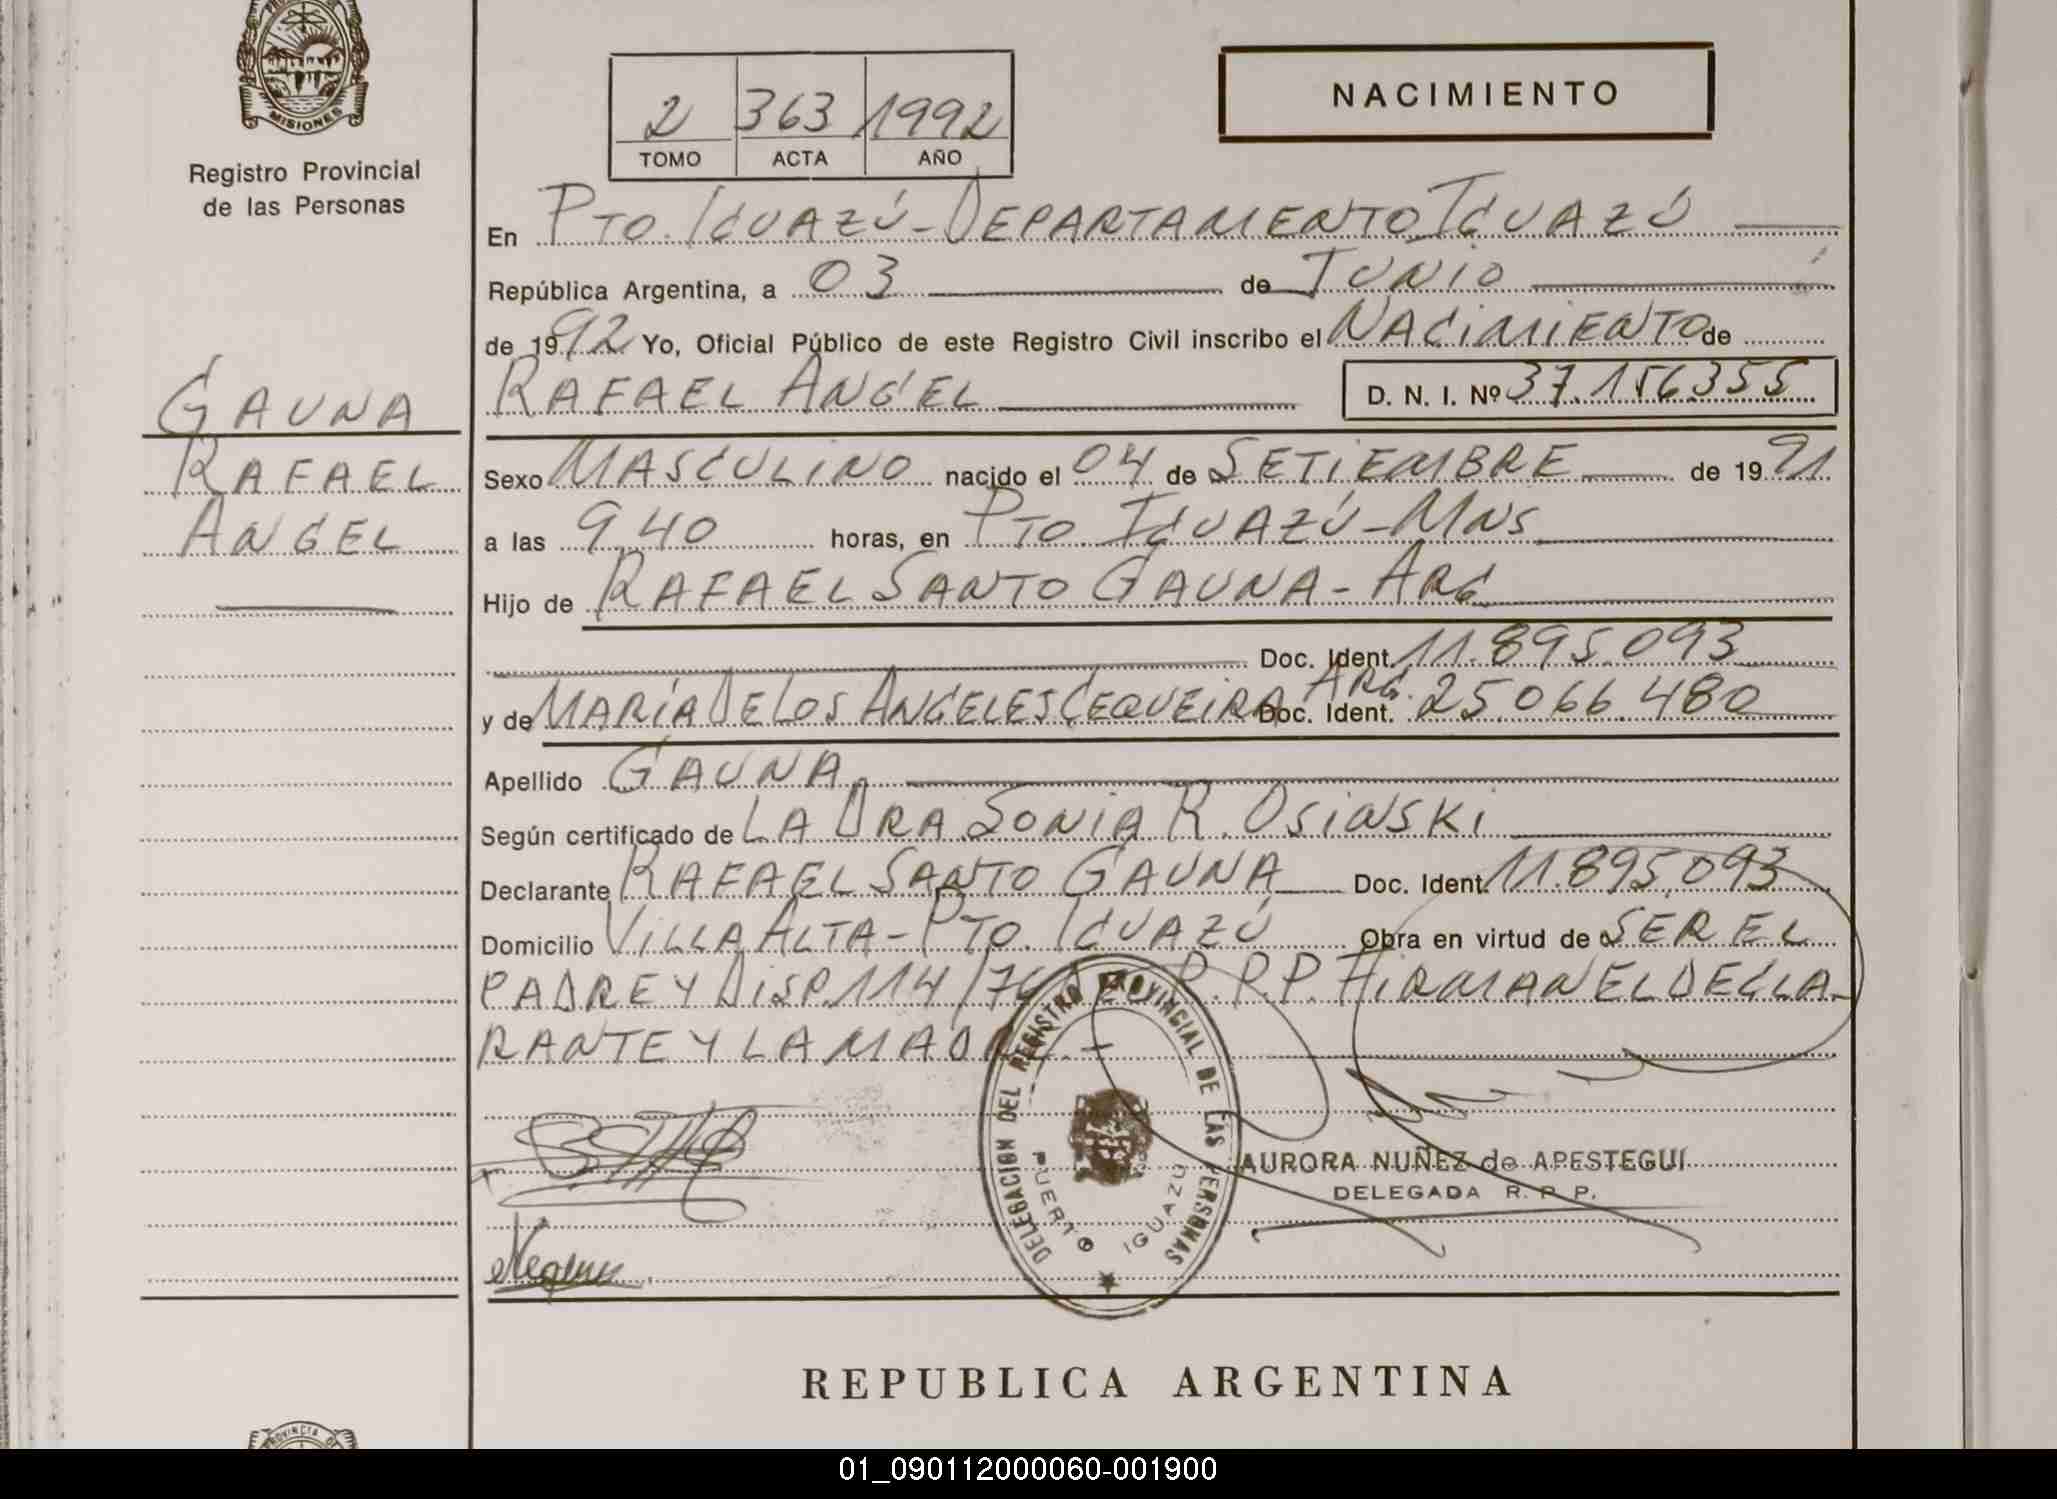 MISIONES
Registro Provincial
de las Personas
2 363 1992
TOMO ACTA AÑO
NACIMIENTO
En PTO. IGUAZÚ - DEPARTAMENTO IGUAZÚ
República Argentina, a 03 de JUNIO
de 1992 Yo, Oficial Público de este Registro Civil inscribo el NACIMIENTO de
GAUNA
RAFAEL
ANGEL
RAFAEL ANGEL D. N. I. Nº 37.156355
Sexo MASCULINO nacido el 04 de SETIEMBRE de 1991
a las 9,40 horas, en PTO. IGUAZÚ - MNS
Hijo de RAFAEL SANTO GAUNA - ARG
Doc. Ident. 11.895.093
y de MARÍA DE LOS ANGELES CEQUEIRA ARG. Doc. Ident. 25.066.480
Apellido GAUNA
Según certificado de LA DRA SONIA R. OSINSKI
Declarante RAFAEL SANTO GAUNA Doc. Ident. 11.895.093
Domicilio VILLA ALTA - PTO. IGUAZÚ Obra en virtud de SER EL
PADRE Y DISP. 114/76 R.P.P. FIRMAN EL DECLA-
RANTE Y LA MADRE. -
DELEGACION DEL REGISTRO PROVINCIAL DE LAS PERSONAS
PUERTO IGUAZU
AURORA NUÑEZ de APESTEGUI
DELEGADA R. P. P.
REPUBLICA ARGENTINA
PROVINCIA DE
01_090112000060-001900